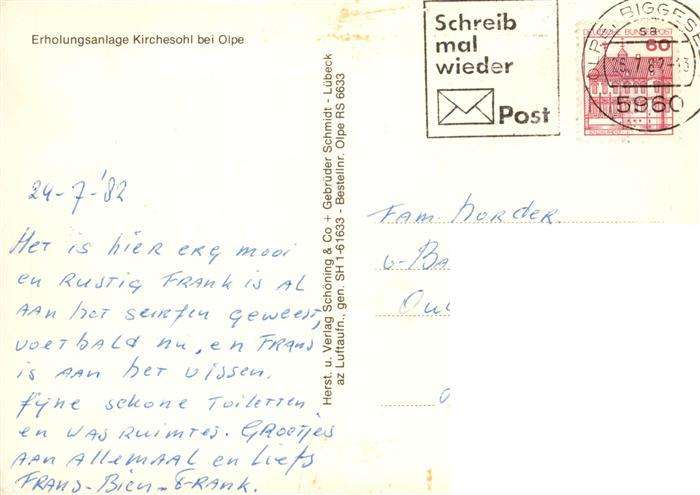 Erholungsanlage Kirchesohl bei Olpe
Schreib
mal
wieder
Post
DEUTSCHE BUNDESPOST
60
BIGGESEE
sa
5960
Herst. u. Verlag Schöning & Co + Gebrüder Schmidt - Lübeck
az Luftaufn., gen. SH 1-61633 - Bestellnr. Olpe RS 6633
24-7-'82
Het is hier erg mooi
en Rustig Frank is al
aan het surfen geweest,
voetbald nu, en Frans
is aan het vissen.
fijne schone toiletten
en wasruimtes. Groetjes
aan allemaal en liefs
Frans-Bien-Frank.
Fam. Norder
v-Ba
Ou